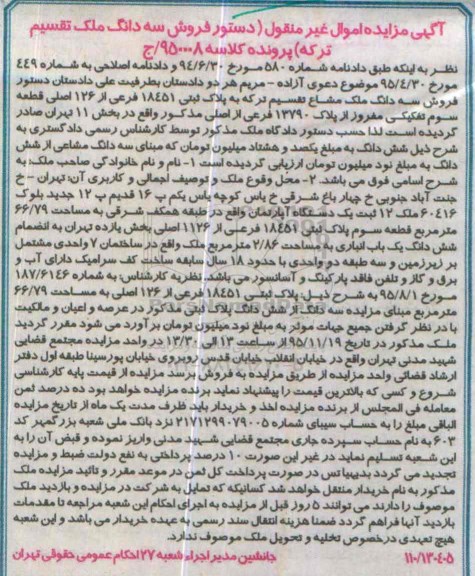 آگهی مزایده اموال غیر منقول ( دستور فروش سه دانگ ملک تقسیم
ترکه) پرونده کلاسه ۹۵۰۰۰۸/ج
نظر به اینکه طبق دادنامه شماره ۵۸۰ مورخ ۹۴/۶/۳۰ و دادنامه اصلاحی به شماره ۴۴۹
مورخ ۹۵/۴/۳۰ موضوع دعوی آزاده - مریم هر دو دادستان بطرفیت علی دادستان دستور
فروش سه دانگ ملک مشاع تقسیم ترکه به پلاک ثبتی ۱۸۴۵۱ فرعی از ۱۲۶ اصلی قطعه
سوم تفکیکی مفروز از پلاک ۱۳۷۹۰ فرعی از اصلی مذکور واقع در بخش ۱۱ تهران صادر
گردیده است لذا حسب دستور دادگاه ملک مذکور توسط کارشناس رسمی دادگستری به
شرح ذیل شش دانگ به مبلغ یکصد و هشتاد میلیون تومان که مبنای سه دانگ مشاعی از شش
دانگ به مبلغ نود میلیون تومان ارزیابی گردیده است ۱- نام و نام خانوادگی صاحب ملک: به
شرح اسامی فوق می باشد. ۲- محل وقوع ملک و توصیف اجمالی و کاربری آن: تهران - خ
جنت آباد جنوبی خ چهار باغ شرقی خ یاس کوچه یاس یکم پ ۱۶ قدیم پ ۱۲ جدید بلوک
۶۰۴۱۶ ملک ۱۲ ثبت یک دستگاه آپارتمان واقع در طبقه همکف شرقی به مساحت ۶۶/۷۹
مترمربع قطعه سوم پلاک ثبتی ۱۸۴۵۱ فرعی از ۱۱۲۶ اصلی بخش یازده تهران به انضمام
شش دانگ یک باب انباری به مساحت ۲/۸۶ مترمربع ملک واقع در ساختمان ۷ واحدی مشتمل
بر زیرزمین و سه طبقه دو واحدی با حدود ۱۸ سال سابقه ساخت کف سرامیک دارای آب و
برق و گاز و تلفن فاقد پارکینگ و آسانسور می باشد. نظریه کارشناس: به شماره ۱۸۷/۶۱۴۶
مورخ ۹۵/۸/۱ به شرح ذیل: پلاک ثبتی ۱۸۴۵۱ فرعی از ۱۲۶ اصلی به مساحت ۶۶/۷۹
مترمربع مبنای مزایده سه دانگ از شش دانگ پلاک ثبتی مذکور در عرصه و اعیان و مالکیت
با در نظر گرفتن جمیع جهات موثر به مبلغ نود میلیون تومان برآورد می شود مقرر گردید
ملک مذکور در تاریخ ۹۵/۱۱/۱۹ از ساعت ۱۳ الی ۱۳/۳۰ در واحد مزایده مجتمع قضایی
شهید مدنی تهران واقع در خیابان انقلاب خیابان قدس روبروی خیابان پورسینا طبقه اول دفتر
ارشاد قضائی واحد مزایده از طریق مزایده به فروش برسد مزایده از قیمت پایه کارشناسی
شروع و کسی که بالاترین قیمت را پیشنهاد نماید برنده مزایده خواهد بود ده درصد ثمن
معامله فی المجلس از برنده مزایده اخذ و خریدار باید ظرف مدت یک ماه از تاریخ مزایده
الباقی مبلغ را به حساب سیبای شماره ۲۱۷۱۲۹۹۰۷۹۰۰۵ نزد بانک ملی شعبه بزرگمهر کد
۶۰۳ به نام حساب سپرده جاری مجتمع قضایی شهید مدنی واریز نموده و قبض آن را به
این شعبه تسلیم نماید در غیر این صورت ۱۰ درصد پرداختی به نفع دولت ضبط و مزایده
تجدید می گردد بدیهیا تس در صورت پرداخت کل ثمن در موعد مقرر و تائید مزایده ملک
مذکور به نام خریدار منتقل خواهد شد کسانیکه که تمایل به شرکت در مزایده و بازدید ملک
موصوف را دارند می توانند ۵ روز قبل از مزایده به اجرای احکام این شعبه مراجعه تا مقدمات
بازدید آنها فراهم گردد ضمنا هزینه انتقال سند رسمی به عهده خریدار می باشد و این شعبه
هیچ تعهدی درخصوص تخلیه و تحویل ملک موصوف ندارد.
۱۱۰/۱۳۰۴۰۵ جانشین مدیر اجراء شعبه ۲۷ احکام عمومی حقوقی تهران